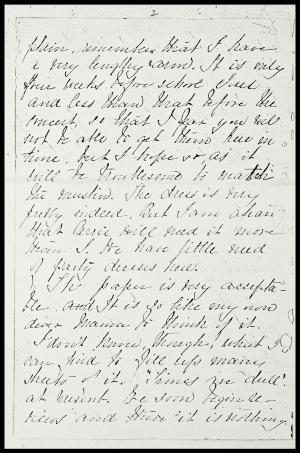 2
plain, remember that I have
a very lengthy arm. It is only
four weeks before school closes
and less than that before the
concert, so that I fear you will
not be able to get them here in
time, but I hope so, as it
will be troublesome to match
the muslin. The dress is very
pretty indeed. But I am afraid
that Carrie will need it more
than I. We have little need
of party dresses here.
This paper is very accepta-
ble, and it is so like my own
dear Mama to think of it.
I don't know, though, what I
can find to fill up many
sheets of it. "Times are dull"
at present. We soon begin re-
views and then it is nothing